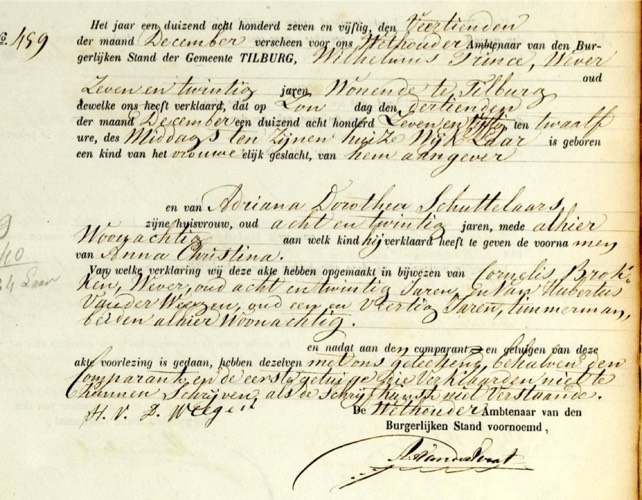 No. 459
Het jaar een duizend acht honderd zeven en vijftig, den Veertienden
der maand December verscheen voor ons Wethouder Ambtenaar van den Bur-
gerlijken Stand der Gemeente TILBURG, Wilhelmus Prince, Wever
oud
Zeven en twintig jaren Wonende te Tilburg
dewelke ons heeft verklaard, dat op Zon dag den dertienden
der maand December een duizend acht honderd Zeven en vijftig ten twaalf
ure, des Middags ten Zijnen huize Wijk Laar is geboren
een kind van het vrouwe elijk geslacht, van hem aangever
en van Adriana Dorothea Schuttelaars
zijne huisvrouw, oud acht en twintig jaren, mede alhier
Woonachtig aan welk kind hij verklaard heeft te geven de voorna men
van Anna Christina.
Van welke verklaring wij deze akte hebben opgemaakt in bijwezen van Cornelis Brok-
ken, Wever, oud acht en twintig Jaren, en Van Hubertus
Van der Weegen, oud een en Veertig Jaren, timmerman,
beiden alhier Woonachtig.
en nadat aan den comparant en getuigen van deze
akte voorlezing is gedaan, hebben dezelven met ons geteekend, behalven den
Comparant en de eerste getuige die verklaarden niet te
kunnen Schrijven als de schrijfkunst niet verstaande.
H. V. D. Weegen
De Wethouder Ambtenaar van den
Burgerlijken Stand voornoemd,